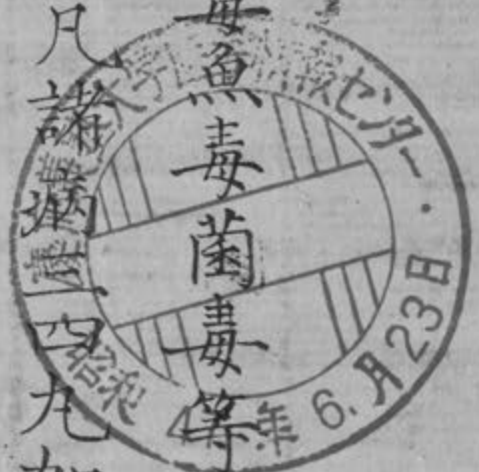 毒魚毒菌毒等
凡諸病一四九
センター・
昭和 4 年 6.月23日